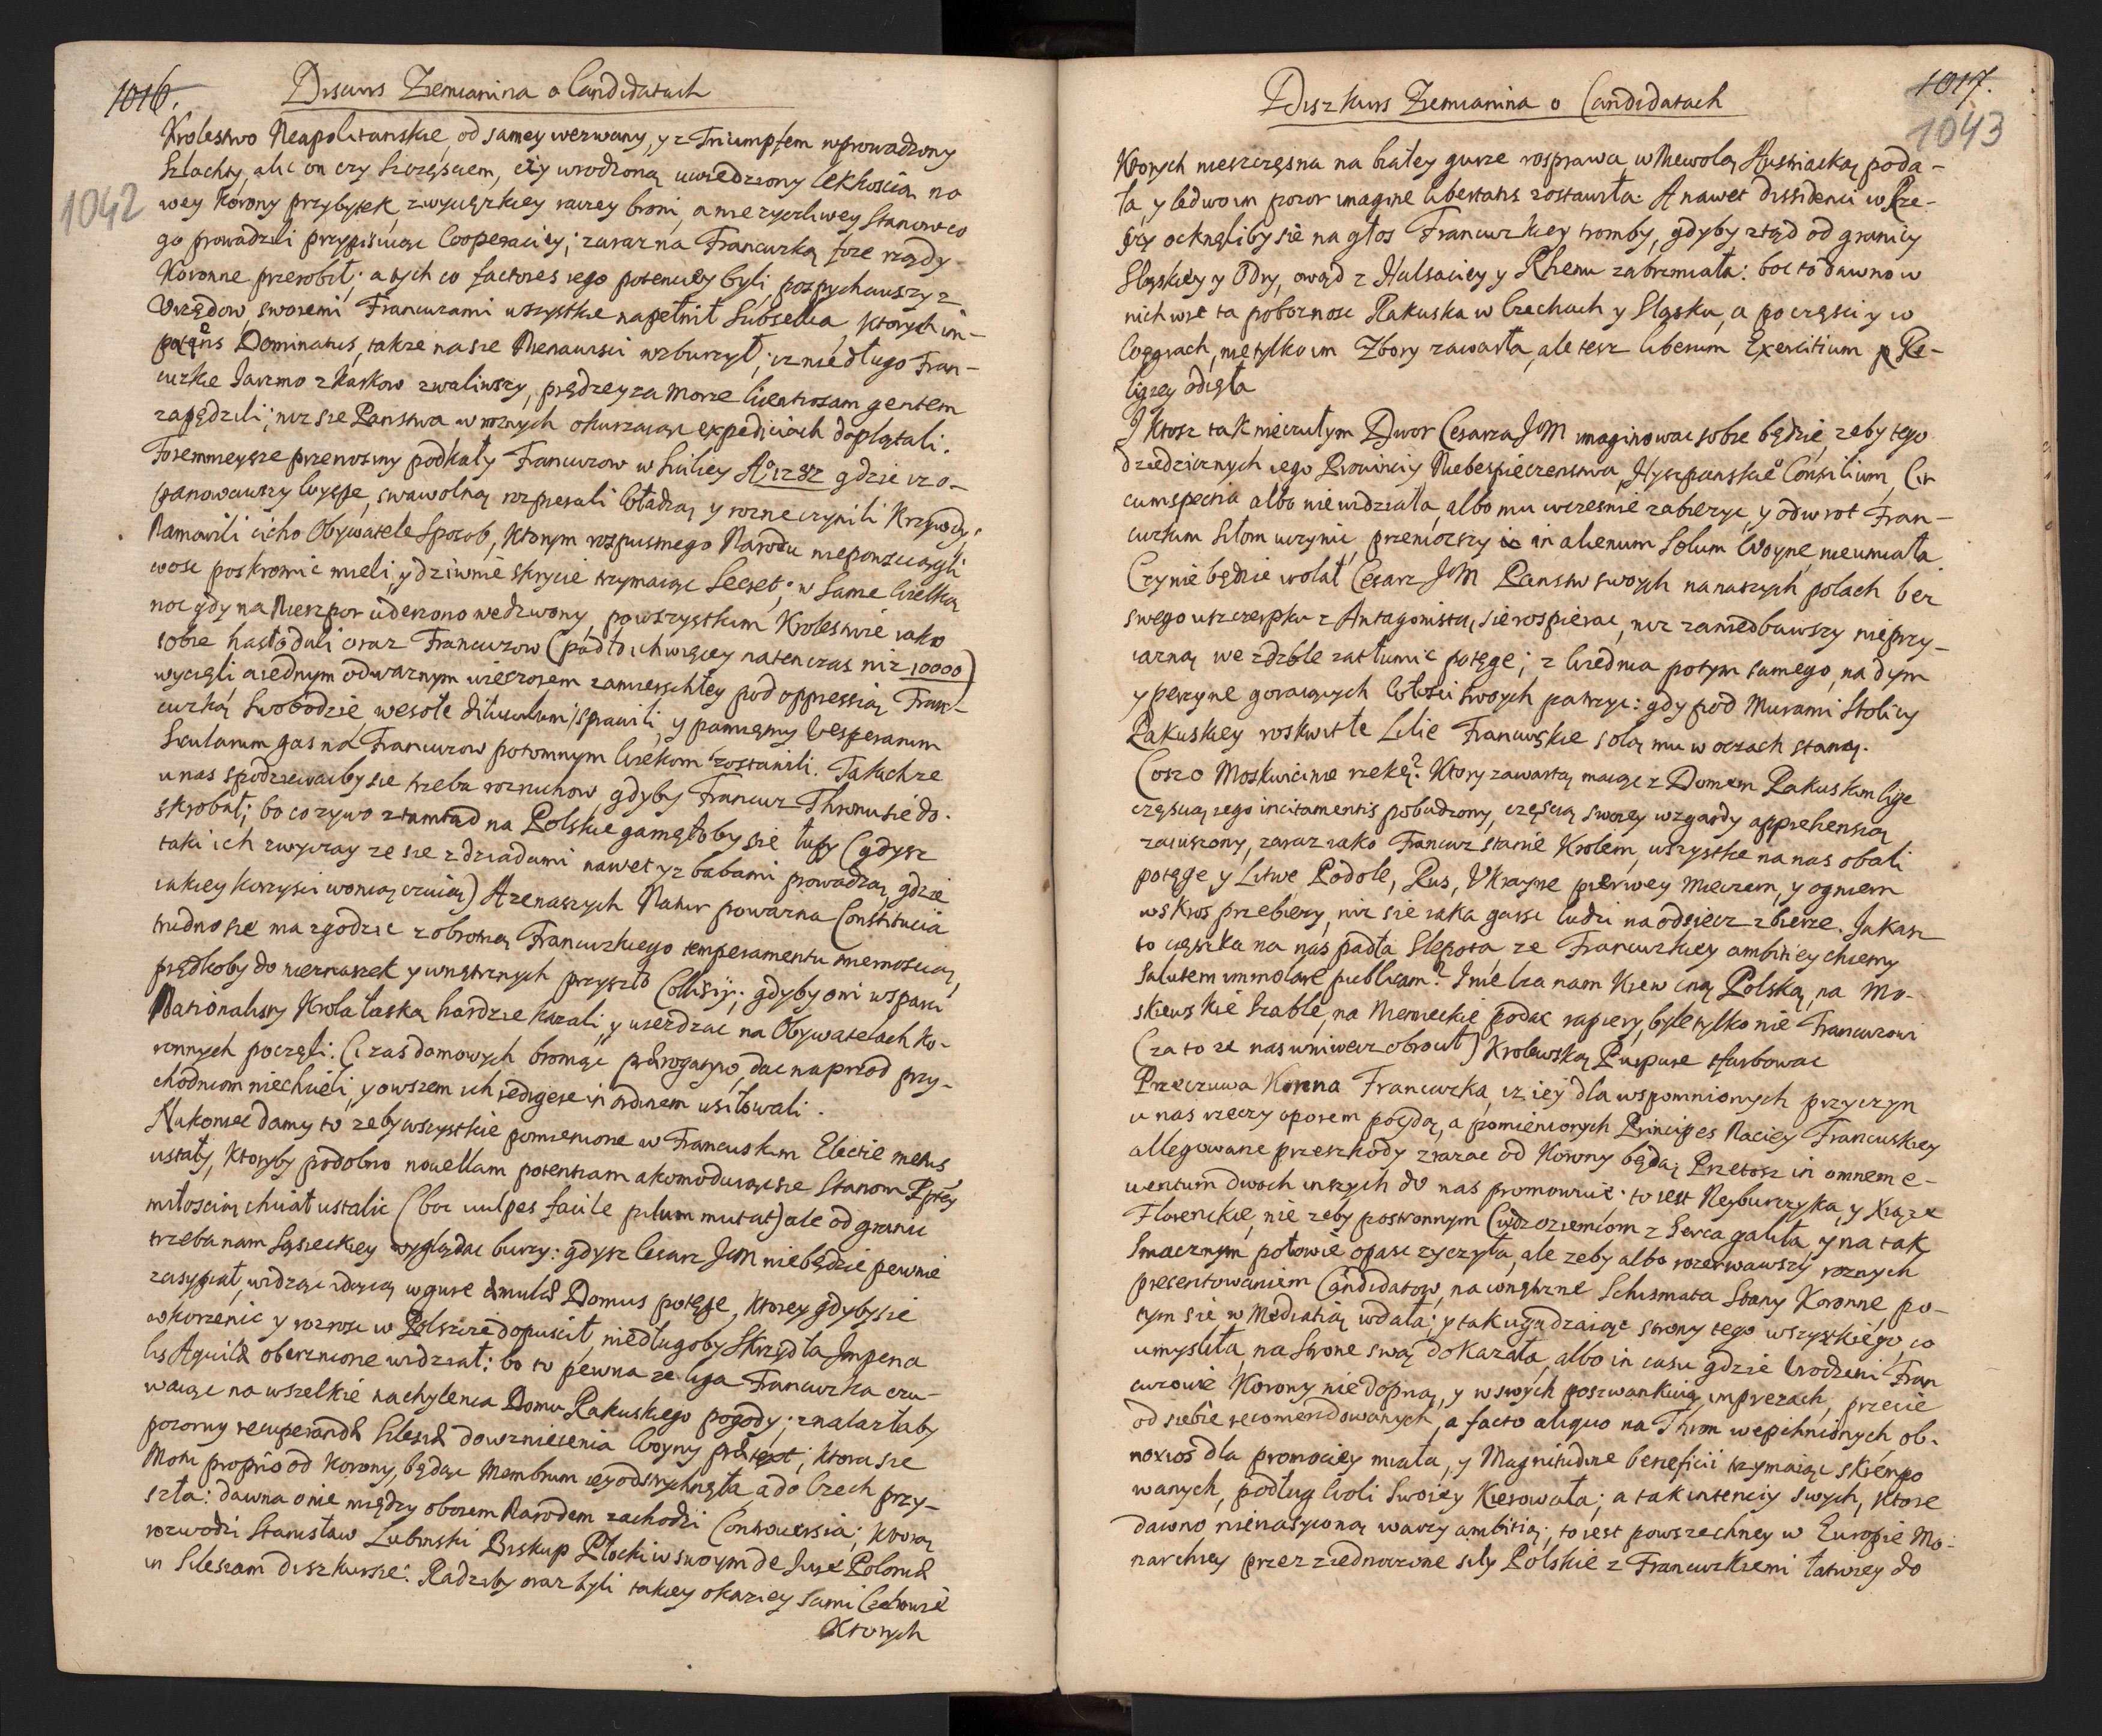 1016.
Diskurs Ziemianina o Candidatach
Krolestwo Neapolitanskie, od samey wezwany, y z Triumphem wprowadzony
Szlachty, alic on czy szczęściem, czy wrodzoną uwiedziony lekkoscią no
1042
wey Korony przybytek zwycięzkiey raczey broni, a nie zyczliwey Stanow co
go prowadzili przypisuiąc Cooperaciey; zaraz na Francuzką forę rządy
Koronne przerobił; a tych co factores iego potenciey byli, pozpychawszy z
Urzędow, swoiemi Francuzami wszystkie napełnił Subsellia, ktorych im-
potens Dominatus, takze na sie Nienawisci wzburzył; iz niedługo Fran-
cuzkie Jarzmo z karkow zwaliwszy, prędzey za morze licentiosam gentem
zapędzili; niz sie Panstwa w roznych okurzaiąc expediciach doplątali.
Foremnieysze przenosiny podkały Francuzow w Siciliey Ao 1282 gdzie izo-
panowawszy Wyspę, swawolną rozpierali Władzą y rozne czynili Krzywdy.
Namowili cicho Obywatele Sposob, ktorym rozpustnego Narodu niepowsciągli
wosc poskromic mieli, y dziwnie skrycie trzymaiąc Secret; w Same Wielką
noc gdy na Nieszpor uderzono we dzwony, po wszystkim Krolestwie iako
sobie hasło dali oraz Francuzow (padło ich więcey natenczas niz 10000)
wycięli a iednym odwaznym wieczorem zamierzchłey pod oppressią Fran-
cuzką Swobodzie wesołe diluculum sprawili, y pamiętny Vesperarum
Sicularum gas na Francuzow potomnym Wiekom zostawili. Takich ze
u nas spodziewacby sie trzeba rozruchow, gdyby Francuz Thronu sie do-
skrobał; bo co zywo ztamtad na Polskie garnęłoby się łupy (gdysz
taki ich zwyczay ze sie z dziadami nawet y z babami prowadzą, gdzie
iakiey korzysci wonią czuią) A ze naszych Natur powazna Constitucia
trudno sie ma zgodzic z obrotną Francuzkiego temperamentu
prędkoby do niernaszek y wnętrznych przyszło Collisiy; gdyby oni wsparci
Nationalisty Krola łaską hardzie kazali, y wierdzac na Obywatelach Ko-
ronnych poczęli. Ci zas domowych broniąc prærogatyw, dac naprzod przy-
chodniom niechcieli, y owszem ich redigere in ordinem usiłowali.
Nakoniec damy to zeby wszystkie pomienione w Francuskim Elecie metus
ustały, ktoryby podobno novellam potentiam akomoduiąc sie Stanom Rptey
miłoscią chciał ustalic (boc vulpes facile pilum mutat) ale od granic
trzeba nam Sąsieckiey wyglądac burzy: gdysz Cesarz JoM niebędzie pewnie
zasypiał, widząc idącą w gure æmulæ Domus potęgę, ktorey gdyby sie
wkorzenic y rozrosc w Polszcze dopuscił, niedługoby Skrzydła Imperia
lis Aquilæ oberznione widział: bo to pewna ze liga Francuzka czu-
waiąc na wszelkie nachylenia Domu Rakuskiego pogody; znalazłaby
pozorny recuperandæ Silesiæ do wzniecenia Woyny prætext; ktora sie
Motu proprio od Korony, będąc Membrum iey odstrychnęła, a do Czech przy-
szła: dawna o nie między oboiem Narodem zachodzi Controversia; ktorą
rozwodzi Stanisław Lubinski Biskup Płocki w swoym de Iure Poloniæ
in Silesiam diszkursie. Radziby oraz byli takiey okaziey sami Czechowie
Ktorych
1017.
Diszkurs Ziemianina o Candidatach
1043
Ktorych nieszczęsna na białey gurze rosprawa w Niewolą Austriacką poda-
ła, y ledwo im pozor imagine libertatis zostawiła. A nawet dissidenci w Rze-
szy ocknęliby sie na głos Francuzkiey tromby, gdyby ztąd od granicy
Sląskiey y Odry, owąd z Halsaciey y Rhenu zabrzmiała: boc to dawno w
nich wre ta poboznosc Rakuska w Czechach y Sląsku, a po częsci y w
Węgrach, nie tylko im Zbory zawarła, ale tesz liberum Exercitium Re-
ligiey odięła
I ktosz tak nieczułym Dwor Cesarza JoM imaginowac sobie będzie, zeby tego
dziedzicznych iego Prowinciy Niebespieczenstwa, Hyszpanskie Consilium, Cir
cumspectia albo nie widziała, albo mu wczesnie zabiezyc, y odwrot Fran-
cuzkim Siłom uczynic, przeniozszy in alienum Solum Woynę, nieumiała.
Czy nie będzie wolał Cesarz JoM Panstw swoych na naszych polach bez
swego uszczerpku z Antagonistą sie rospierac, niz zaniedbawszy nieprzy-
iazną we zdzble zatłumic potęgę; z Wiednia potym samego, na dym
y perzynę goraiących Włosci swoych patrzyc: gdy pod Murami Stolicy
Rakuskiey roskwitłe Lilie Francuskie solą mu w oczach staną.
Cosz o Moskwicinie rzekę? Ktory zawartą maiąc z Domem Rakuskim ligę
częscią iego incitamentis pobudzony, częscią swoiey wzgardy apprehensią
zaiuszony, zaraz iako Francuz stanie Krolem, wszystkie na nas obali
potęgę y Litwę Podole, Rus, Ukrainę pierwey mieczem, y ogniem
wskros przebiezy, niz sie iaka garsc ludzi na odsiecz zbierze. Jakasz
to cięszka na nas padła Slepota, ze Francuzkiey ambitiey chcemy
salutem immolare publicam? I nie lza nam Krew iną Polską, na Mo-
skiewskie Szable, na Niemieckie podac rapiery, byle tylko nie Francuzowi
(za to ze nas w niwecz obrocił) Krolewską Purpurę sfarbowac
Przeczuwa Korona Francuzka, iz iey dla wspomnionych przyczyn
u nas rzeczy oporem poydą, a pomienionych Principes Naciey Francuskiey
allegowane przeszkody zrazac od Korony będą Przetosz in omnem e-
ventum dwoch inszych do nas promowuie; to iest Neyburczyka, y Xiąze
Florenckie, nie zeby postronnym Cudzoziemcom z Serca galiła, y na tak
Smacznym połowie opasc zyczyła, ale zeby albo rozerwawszy roznych
præsentowaniem Candidatow, na wnętrzne Schismata Stany Koronne, po-
tym sie w Mediatią wdała: y tak ugadzaiąc strony tego wszystkiego, co
umysliła, na Stronę swą dokazała, albo in casu gdzie Urodzeni Fran
cuzowie Korony nie dopną, y w swych poszwankuią imprezach, przecie
od siebie recomendowanych, a facto aliquo na Thron wepchnionych ob-
noxios dla promociey miała, y Magnitudine beneficii trzymaiąc skrempo
wanych, podług Woli Swoiey kierowała; a tak intenciy swych, ktore
dawno nienasyconą warzy ambitią; to iest powszechney w Europie Mo-
narchiey przez ziednoczone siły Polskie z Francuzkiemi łatwiey do